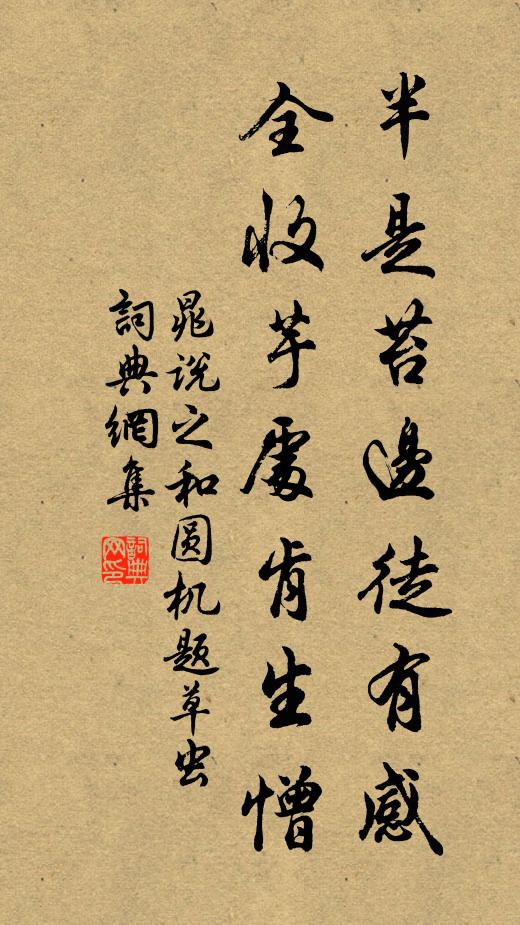 半是苔邊徒有感
全收芋處肯生憎
晁说之和圆机题草虫
詞典網集
詞典网印